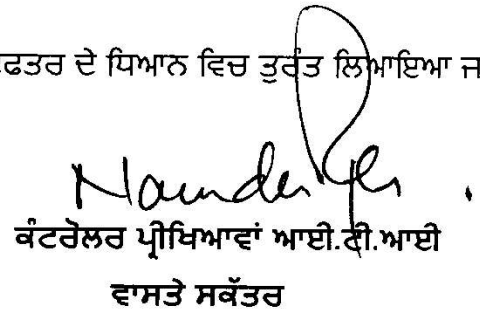 ਫਤਰ ਦੇ ਧਿਆਨ ਵਿਚ ਤੁਰੰਤ ਲਿਆਇਆ ਜ
ਕੰਟਰੋਲਰ ਪ੍ਰੀਖਿਆਵਾਂ ਆਈ.ਟੀ.ਆਈ
ਵਾਸਤੇ ਸਕੱਤਰ